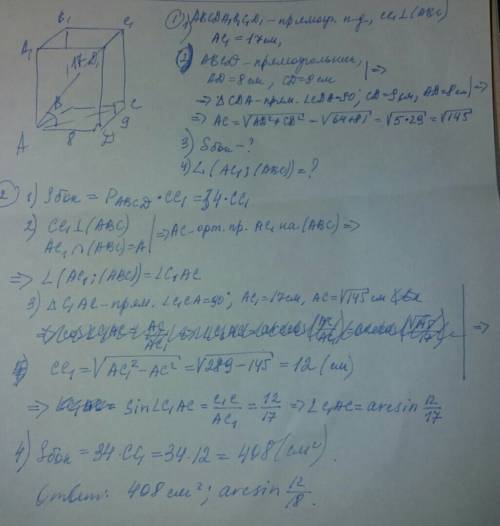 B₁ C₁
A₁ 17 D₁
B C
A 8 D 9
① 1) ABCDA₁B₁C₁D₁ - прямоуг. п-д, CC₁⊥(ABC)
AC₁ = 17см,
2) ABCD - прямоугольник,
AD = 8см, CD = 9см | ⇒
⇒ ΔCDA - прям. ∠CDA=90°; CD=9см, AD=8см | ⇒
⇒ AC = √AD²+CD² = √64+81 = √5·29 = √145
3) Sбок - ?
4) ∠(AC₁; (ABC)) = ?
② 1) Sбок = P_ABCD · CC₁ = 34 · CC₁
2) CC₁⊥(ABC)
AC₁∩(ABC)=A | ⇒ AC - орт. пр. AC₁ на (ABC) ⇒
⇒ ∠(AC₁; (ABC)) = ∠C₁AC
3) ΔC₁AC - прям. ∠C₁CA=90°; AC₁=17см, AC=√145 см
CC₁ = √AC₁² - AC² = √289-145 = 12 (см) | ⇒
⇒ sin∠C₁AC = C₁C/AC₁ = 12/17 ⇒ ∠C₁AC = arcsin 12/17
4) Sбок = 34·CC₁ = 34·12 = 408 (см²).
Ответ: 408 см²; arcsin 12/18.